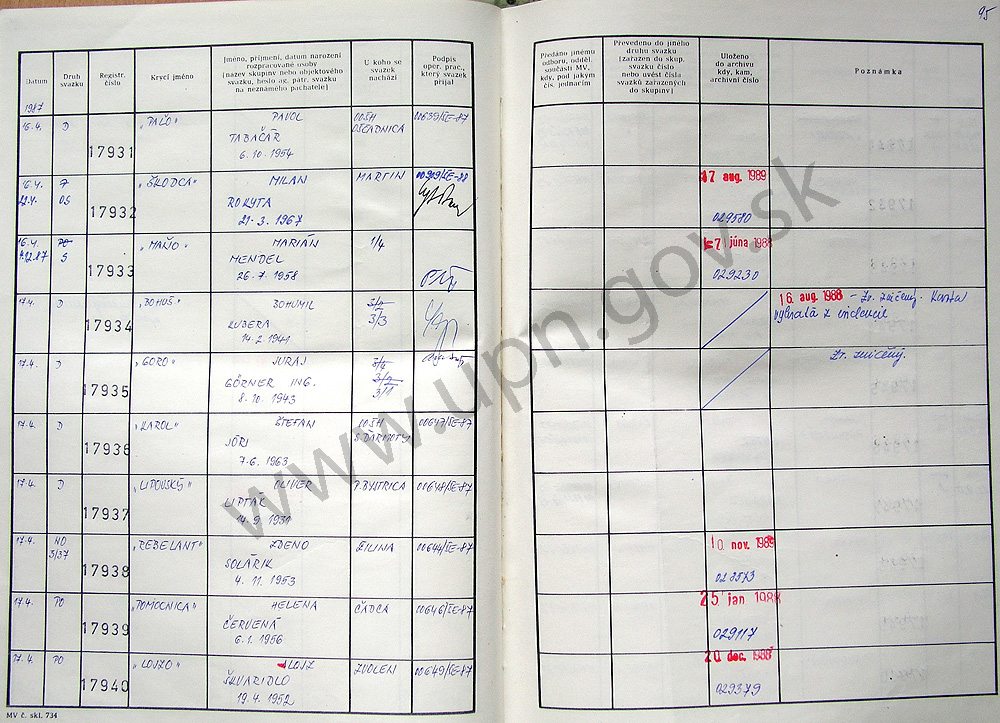 95
Datum
Druh svazku
Registr. číslo
Krycí jméno
Jméno, příjmení, datum narození
rozpracované osoby
[název skupiny nebo objektového
svazku, heslo ag. pátr. svazku
na neznámého pachatele]
U koho se
svazek
nachází
Podpis
oper. prac.,
který svazek
přijal
Předáno jinému
odboru, odděl.
součásti MV,
kdy, pod jakým
čís. jednacím
Převedeno do jiného
druhu svazku
[zařazen do skup.
svazku číslo
nebo uvést čísla
svazků zařazených
do skupiny]
Uloženo
do archivu
kdy, kam,
archivní číslo
Poznámka
1987
16.4. D 17931 "PAĽO" PAVOL OOŠH 00639/ŠE-87
TABAČÁR OŠČADNICA
6. 10. 1954
16.4. 17932 "ŠKODCA" MILAN MARTIN 17 aug. 1989
22.4. OS ROKYTA
21. 3. 1967 029580
16.4. PO 17933 "MAŇO" MARIÁN 1/4 7 júna 1988
S MENDEL
26. 7. 1958 029230
17.4. D 17934 "BOHUŠ" BOHUMIL 3/2 16. aug. 1988 – Zv. zničený. Karta
KUBERA 3/3 vybratá z evidencie
14. 2. 1941
17.4. D 17935 "GORO" JURAJ Zv. zničený.
GÖRNER ING. 3/2
8. 10. 1943 3/1
17.4. D 17936 "KAROL" ŠTEFAN OOŠH 00647/ŠE-87
JÓRI S. ĎARMOTY
7. 6. 1963
17.4. D 17937 "LIPOVSKÝ" OLIVER P. BYSTRICA 00648/ŠE-87
LIPTÁK
14. 9. 1931
17.4. ND 17938 "REBELANT" ZDENO ŽILINA 00644/ŠE-87 10 nov. 1989
3/37 SOLÁRIK
4. 11. 1953
17.4. PO 17939 "POMOCNICA" HELENA ČADCA 00646/ŠE-87 25 jan 1988
ČERVENÁ
6. 1. 1956 029117
17.4. PO 17940 "LOJZO" LOJZ ZVOLEN 00649/ŠE-87 20 dec. 1988
ŠKVARIDLO
19. 4. 1952 029379
MV č. skl. 734
www.upn.gov.sk